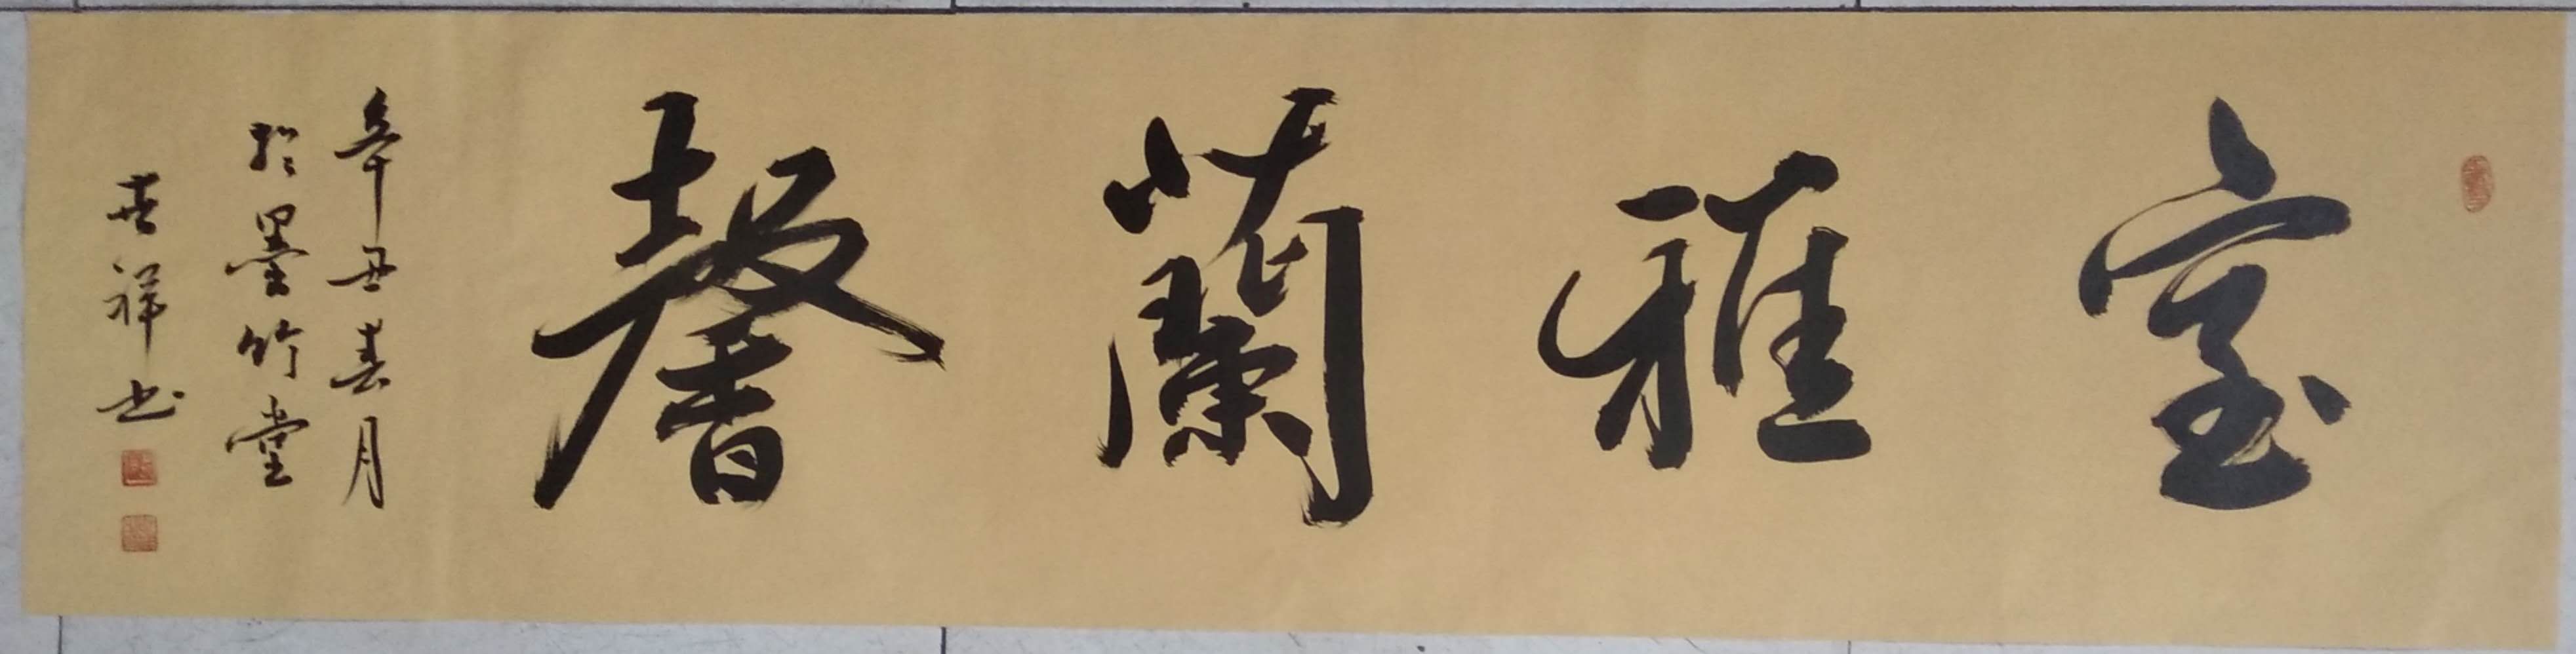 室雅蘭馨
辛丑春月
於墨竹堂
春祥书